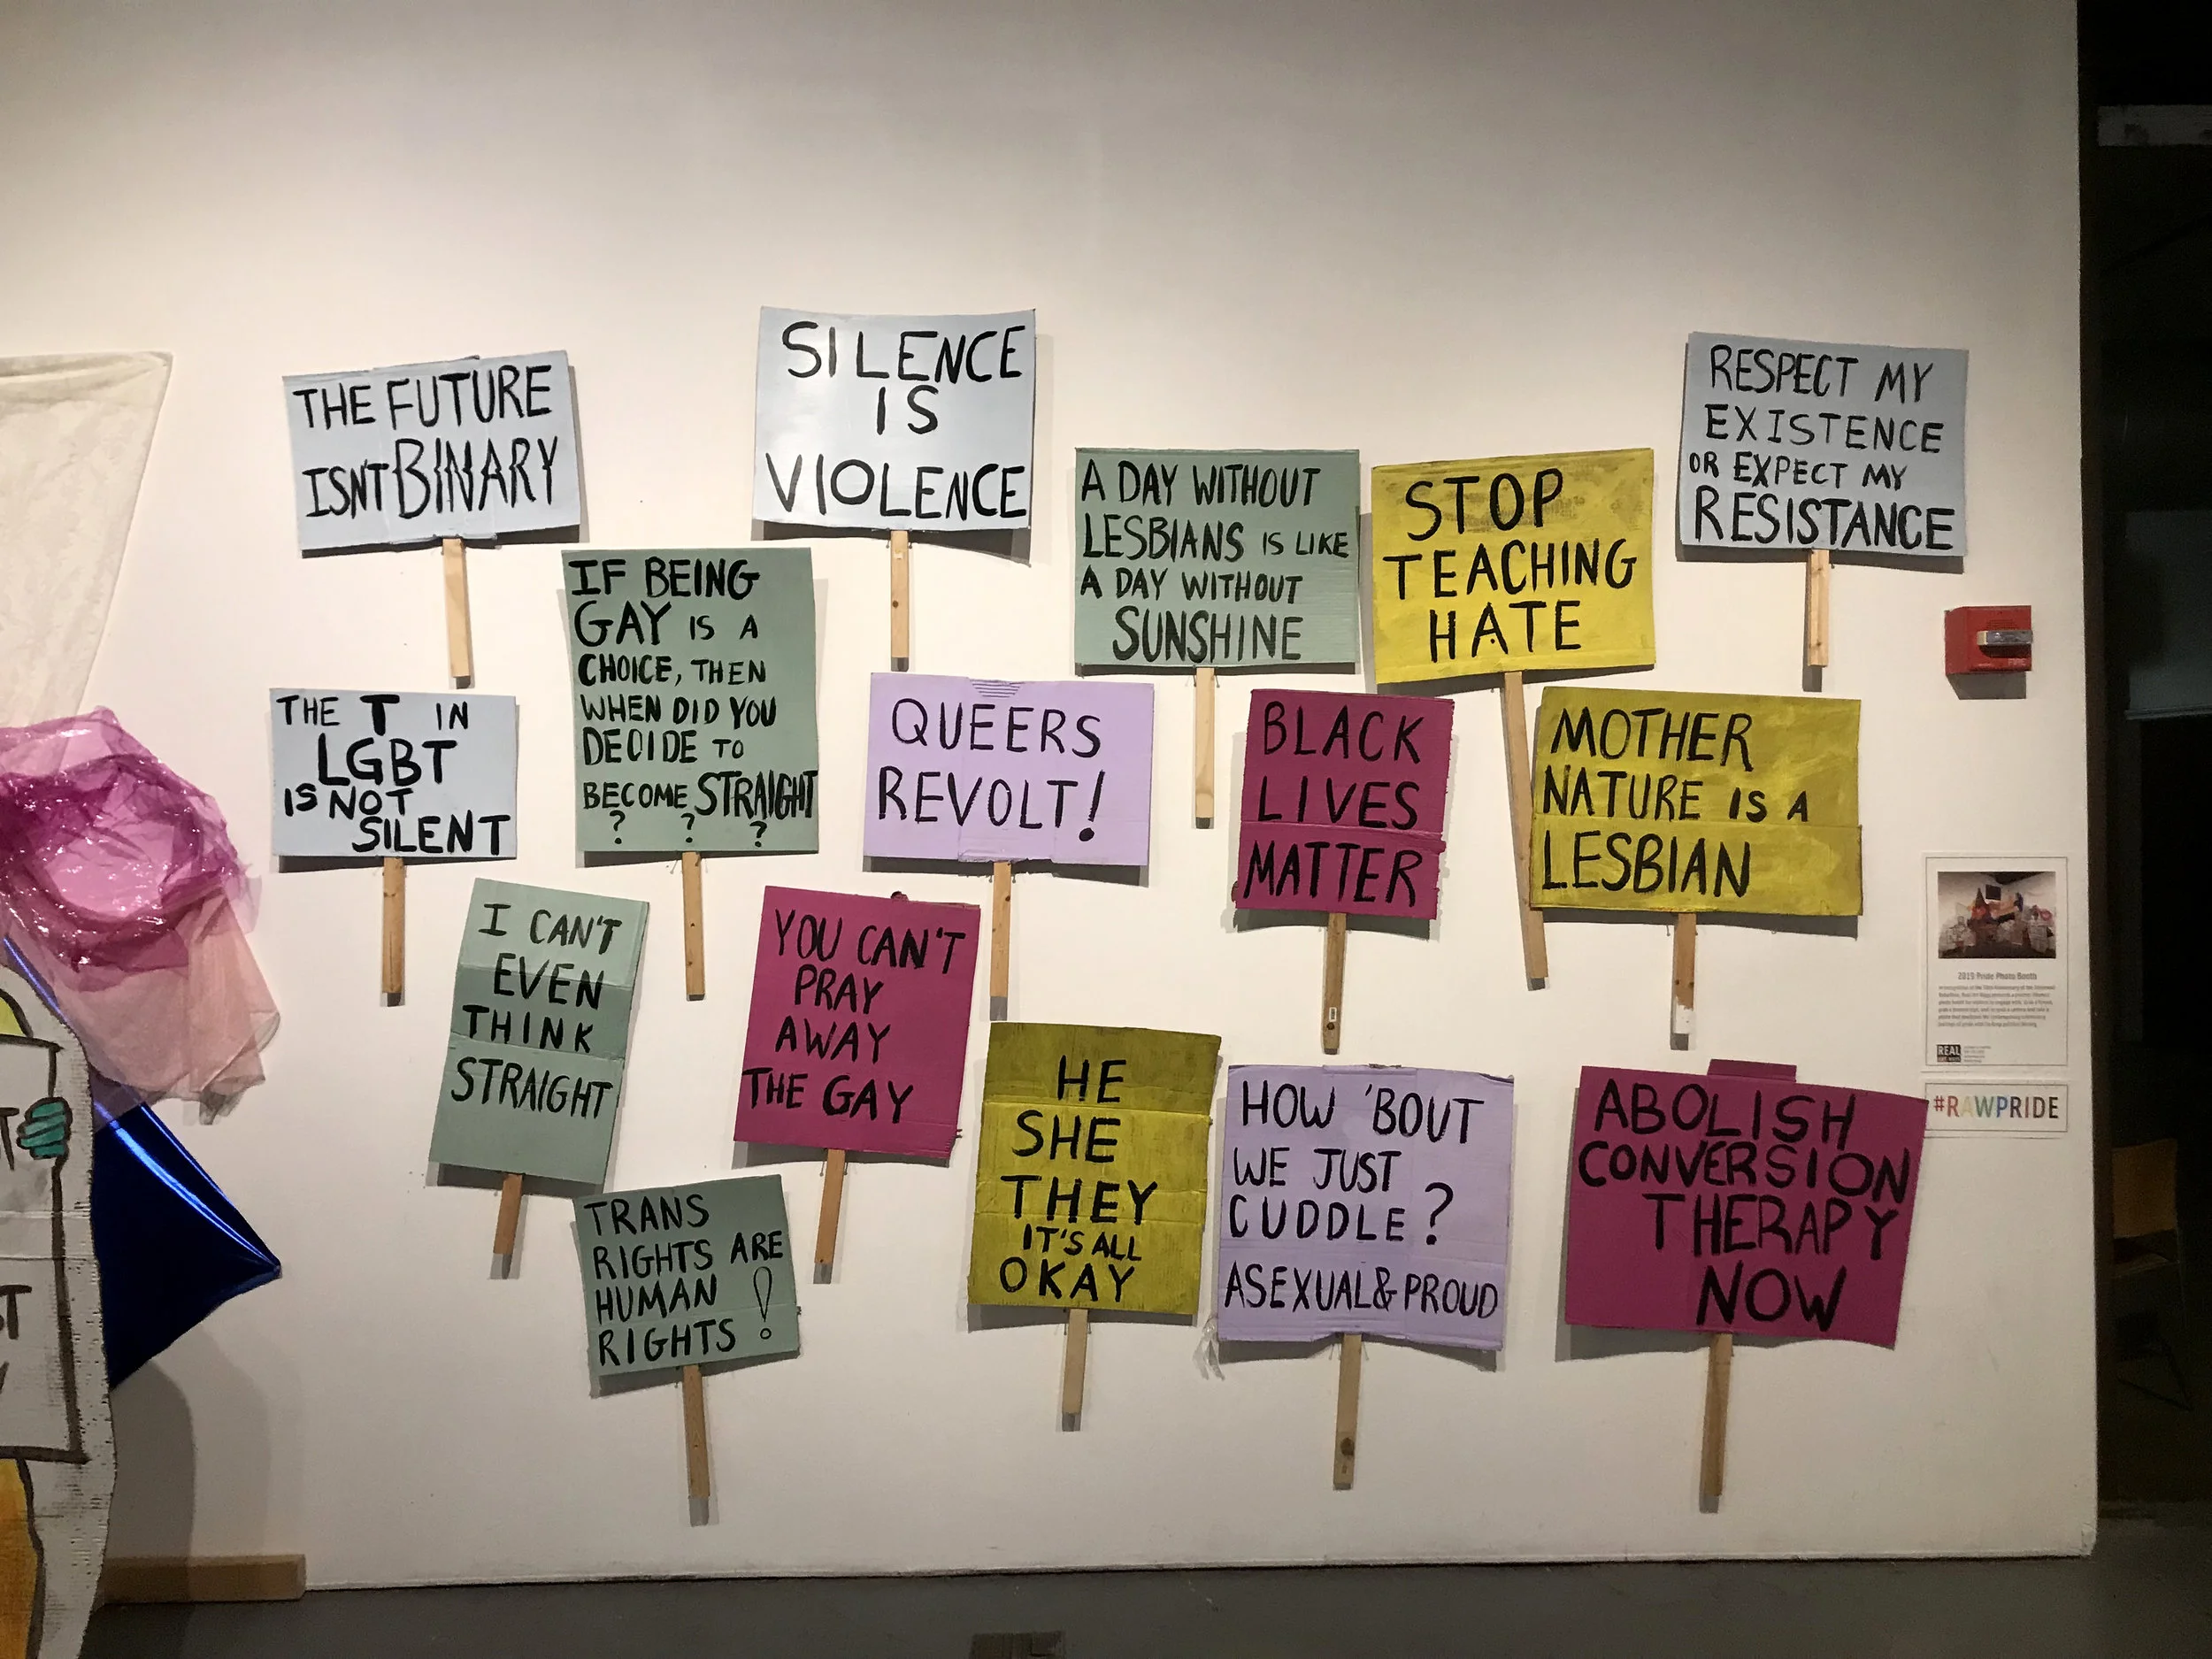 THE FUTURE
ISN'T BINARY
SILENCE
IS
VIOLENCE
RESPECT MY
EXISTENCE
OR EXPECT MY
RESISTANCE
A DAY WITHOUT
LESBIANS IS LIKE
A DAY WITHOUT
SUNSHINE
STOP
TEACHING
HATE
IF BEING
GAY IS A
CHOICE, THEN
WHEN DID YOU
DECIDE TO
BECOME STRAIGHT
? ? ?
THE T IN
LGBT
IS NOT
SILENT
QUEERS
REVOLT!
BLACK
LIVES
MATTER
MOTHER
NATURE IS A
LESBIAN
I CAN'T
EVEN
THINK
STRAIGHT
YOU CAN'T
PRAY
AWAY
THE GAY
HE
SHE
THEY
IT'S ALL
OKAY
HOW 'BOUT
WE JUST
CUDDLE?
ASEXUAL & PROUD
ABOLISH
CONVERSION
THERAPY
NOW
TRANS
RIGHTS ARE
HUMAN
RIGHTS!
2019 Pride Photo Booth
REAL
#RAWPRIDE